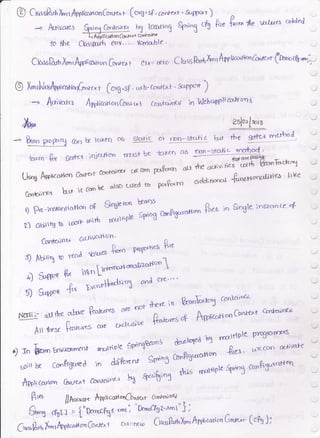 ② ClassPathXmlApplicationContext (org-sf-context-support)
→ Activates Spring Container by locating Spring cfg file from the values added
↳ ApplicationContext Container
to the Classpath env... Variable.
ClassPathXmlApplicationContext ctx= new ClassPathXmlApplicationContext ("DemoCfg.xml");
③ XmlWebApplicationContext (org-sf-web-context-support)
→ Activates ApplicationContext container in Web applications.
25/02/2013
→ Bean property can be taken as static or non-static but the setter method
taken for setter injection must be taken as non-static method.
Using Application Context container we can perform all the activities with BeanFactory
Container but it can be also used to perform additional functionalities like
1) Pre-instantiation of Singleton beans
2) ability to work with multiple Spring Configuration files in Single instance of
Container activation.
3) Ability to read values from properties file
4) Support for I18n [Internationalization]
5) Support for EventHandling and etc...
NOTE:- all the above features are not there in BeanFactory container.
All these features are exclusive features of Application Context container
*) In Team Environment multiple Spring Beans developed by multiple programmers
will be configured in different Spring Configuration files. we can activate
Application Context container by specifying this multiple Spring configuration
files //Activate ApplicationContext Container
String cfg[] = {"DemoCfg1.xml", "DemoCfg2.xml"};
ClassPathXmlApplicationContext ctx=new ClassPathXmlApplicationContext (cfg);